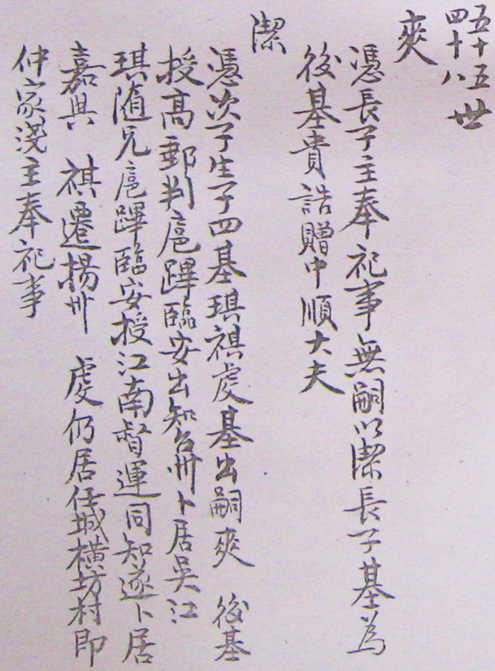 五十五
四十八世
爽
憑長子主奉祀事無嗣以潔長子基為
後基貴誥贈中順大夫
潔
憑次子生子四基琪祺虔基出嗣爽 後基
授高郵判扈蹕臨安出知台州卜居吳江
琪随兄扈蹕臨安授江南督運同知遂卜居
嘉興 祺遷揚州 虔仍居任城橫坊村即
仲家淺主奉祀事